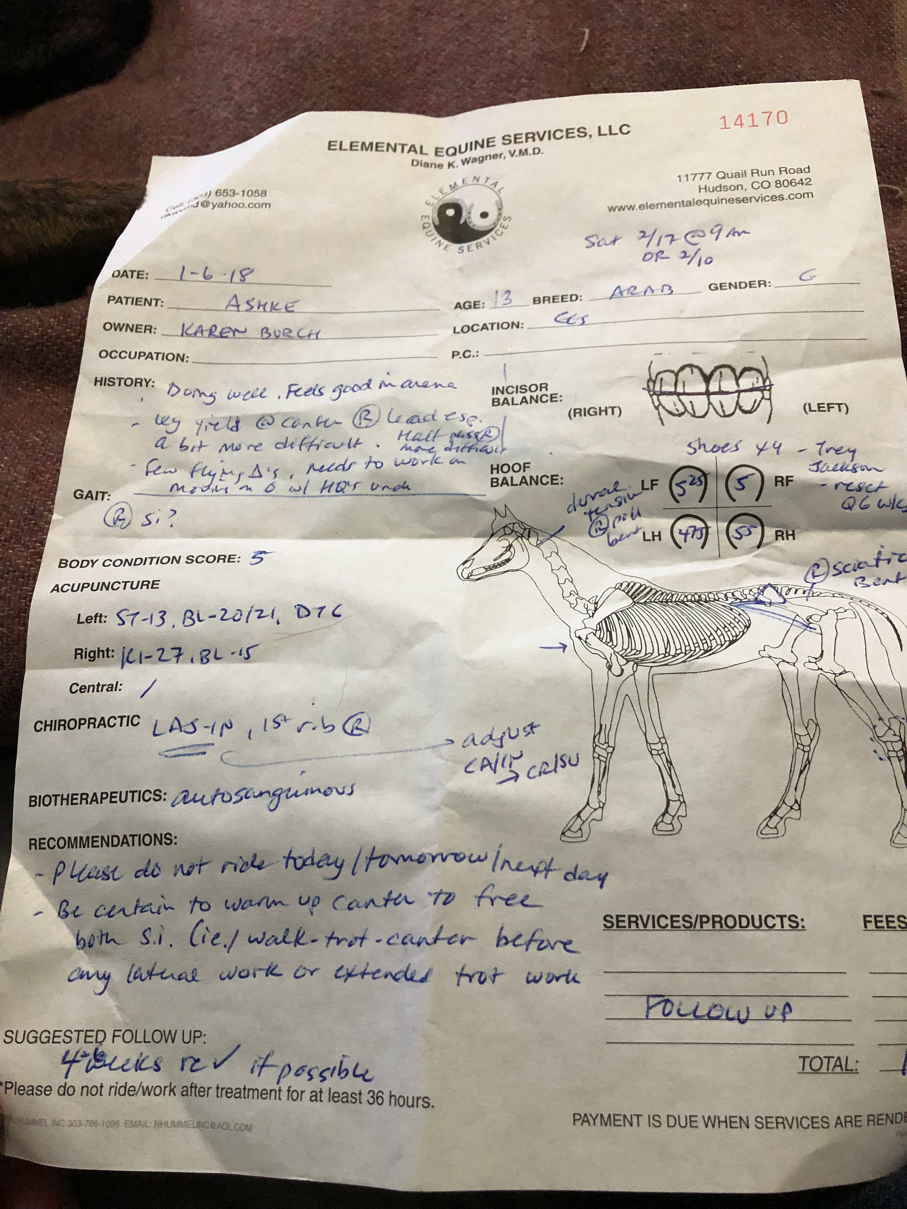 14170
ELEMENTAL EQUINE SERVICES, LLC
Diane K. Wagner, V.M.D.
653-1058
@yahoo.com
ELEMENTAL EQUINE SERVICES
11777 Quail Run Road
Hudson, CO 80642
www.elementalequineservices.com
Sat 2/17 @ 9 am
OR 2/10
DATE: 1-6-18
PATIENT: ASHKE
AGE: 13 BREED: ARAB GENDER: G
OWNER: KAREN BURCH
LOCATION:
OCCUPATION:
P.C.:
HISTORY: Doing well. Feels good in arena
- leg yield @ canter (R) lead esp.
a bit more difficult. Half pass (R)
more difficult
- Few flying Δ's, needs to work on
w/ HQ's
GAIT:
(R) si?
INCISOR
BALANCE:
(RIGHT)
(LEFT)
shoes x4 - Trey
Jackson
- reset
Q6 wks
HOOF
BALANCE:
LF 5 25 5 RF
LH 4 75 55 RH
(R) poll
(R) sciatic
Bent
BODY CONDITION SCORE: 5
ACUPUNCTURE
Left: ST-13, BL-20/21, DTC
Right: KI-27, BL-15
Central: /
CHIROPRACTIC LAS-IN, 1st rib (R)
adjust
CA/IN
→ CR/SU
BIOTHERAPEUTICS: autosanguinous
RECOMMENDATIONS:
- Please do not ride today/tomorrow/next day
- Be certain to warm up canter to free
both s.i. (ie./ walk-trot-canter before
any lateral work or extended trot work
SERVICES/PRODUCTS:
FEES
FOLLOW UP
TOTAL:
SUGGESTED FOLLOW UP:
4 weeks re✓ if possible
*Please do not ride/work after treatment for at least 36 hours.
HUMMEL INC 303-766-1096 EMAIL: NHUMMELINC@AOL.COM
PAYMENT IS DUE WHEN SERVICES ARE RENDE